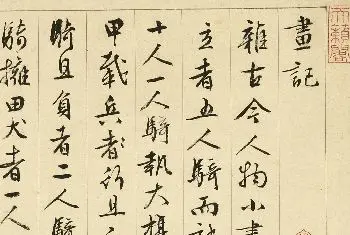 畫記
雜古今人物小畫
立者五人騎而
十人一人騎執大旗
甲載兵者行且
騎且負者二人騎
騎擁田犬者一人